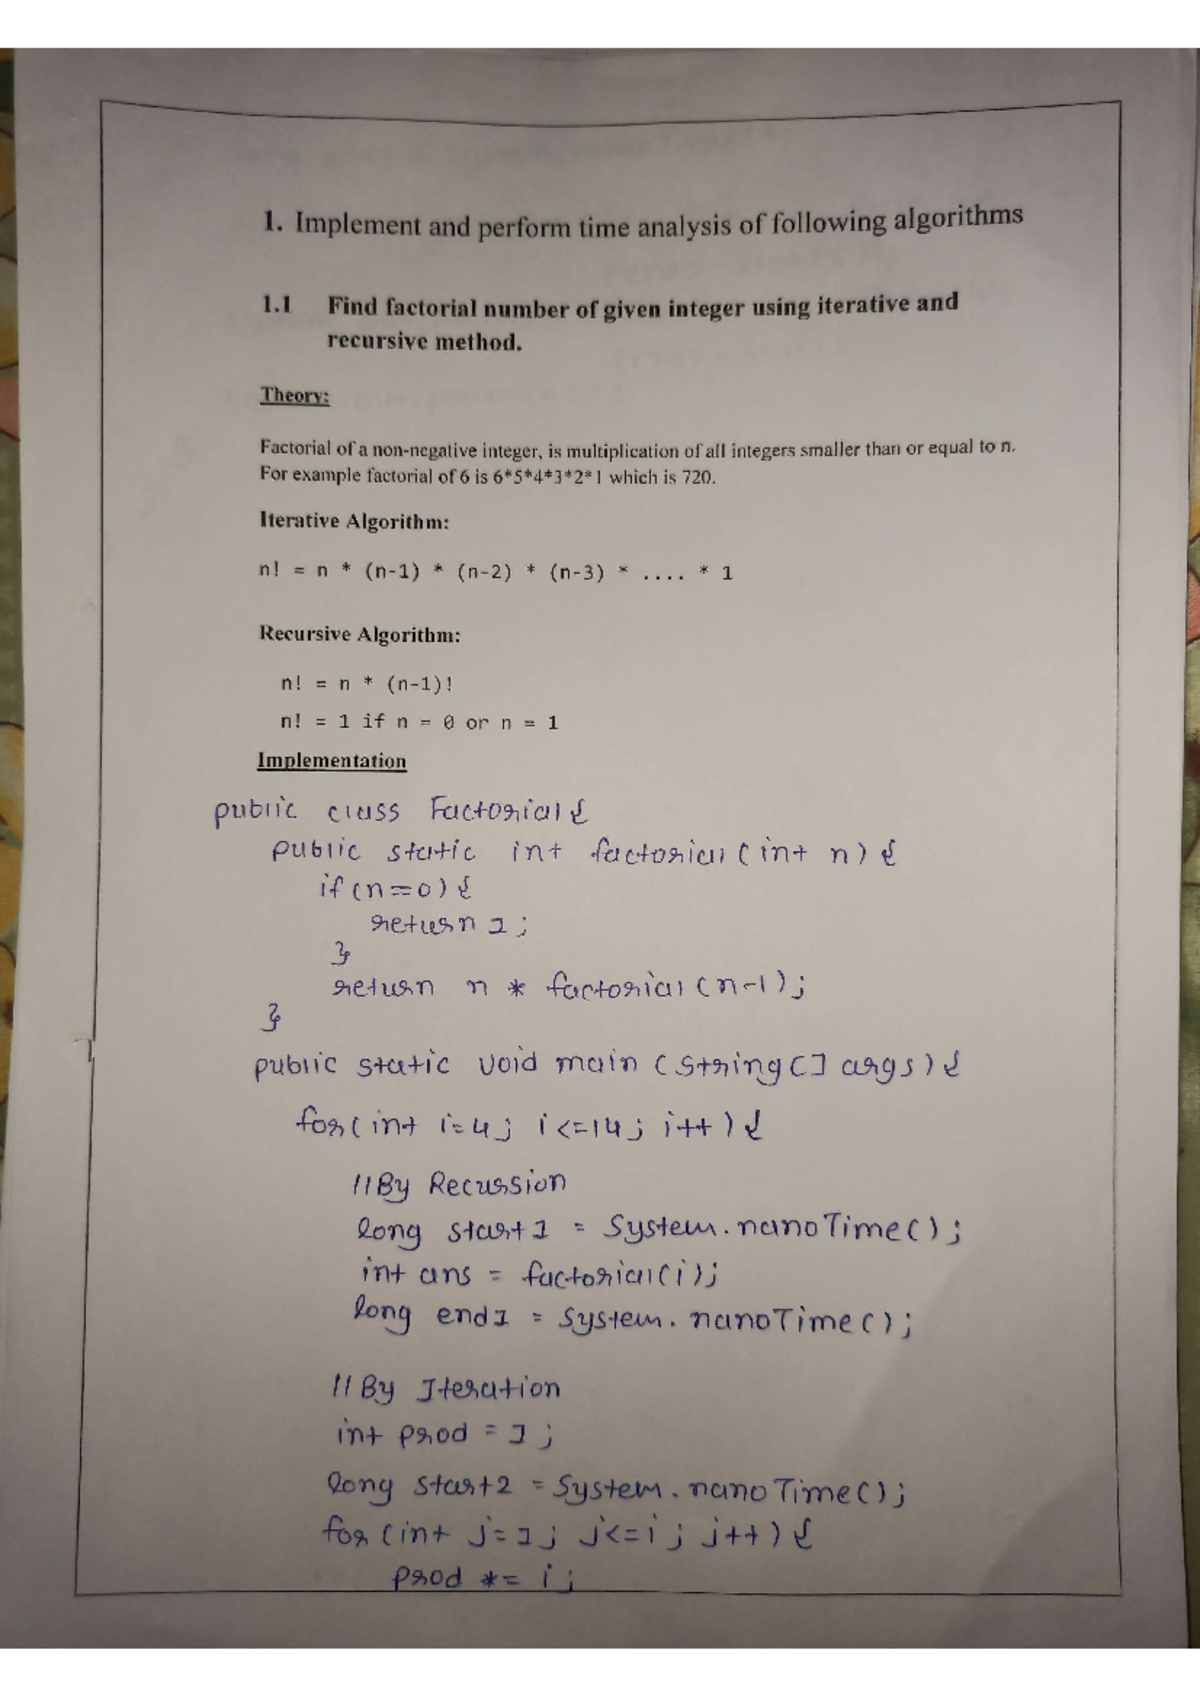 1. Implement and perform time analysis of following algorithms
1.1 Find factorial number of given integer using iterative and
recursive method.
Theory:
Factorial of a non-negative integer, is multiplication of all integers smaller than or equal to n.
For example factorial of 6 is 6*5*4*3*2*1 which is 720.
Iterative Algorithm:
n! = n * (n-1) * (n-2) * (n-3) * .... * 1
Recursive Algorithm:
n! = n * (n-1)!
n! = 1 if n = 0 or n = 1
Implementation
public class Factorial {
public static int factorial (int n) {
if (n==0) {
return 1;
}
return n * factorial (n-1);
}
public static void main (String [] args) {
for (int i=4; i<=14; i++) {
//By Recussion
long start1 = System.nanoTime();
int ans = factorial(i);
long end1 = System.nanoTime();
//By Iteration
int prod = 1;
long start2 = System.nanoTime();
for (int j=1; j<=i; j++) {
prod *= i;